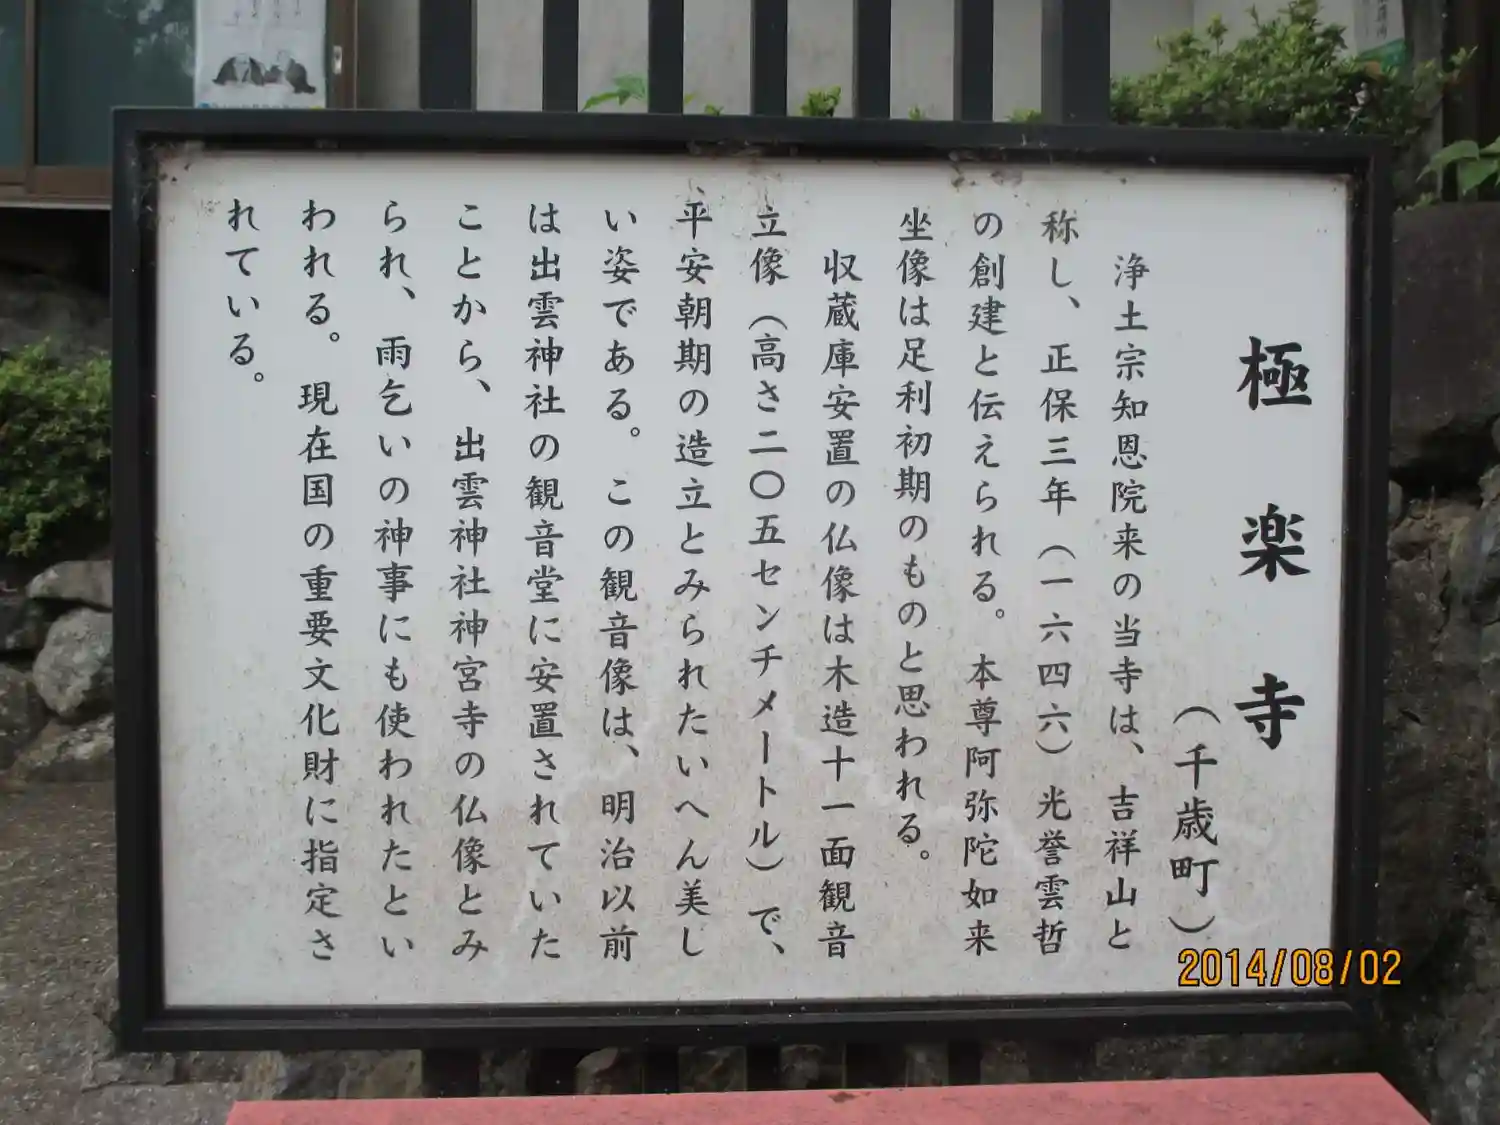 極楽寺
（千歳町）
浄土宗知恩院来の当寺は、吉祥山と
称し、正保三年（一六四六）光誉雲哲
の創建と伝えられる。本尊阿弥陀如来
坐像は足利初期のものと思われる。
収蔵庫安置の仏像は木造十一面観音
立像（高さ二〇五センチメートル）で、
平安朝期の造立とみられたいへん美し
い姿である。この観音像は、明治以前
は出雲神社の観音堂に安置されていた
ことから、出雲神社神宮寺の仏像とみ
られ、雨乞いの神事にも使われたとい
われる。現在国の重要文化財に指定さ
れている。
2014/08/02